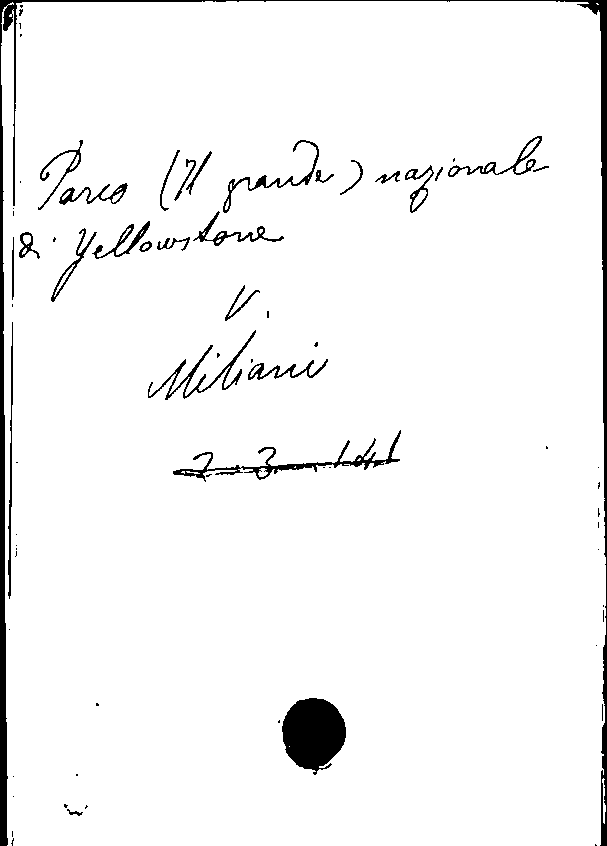 Parco (Il grande) nazionale
di Yellowstone
V.
Miliani
7. 3. 141